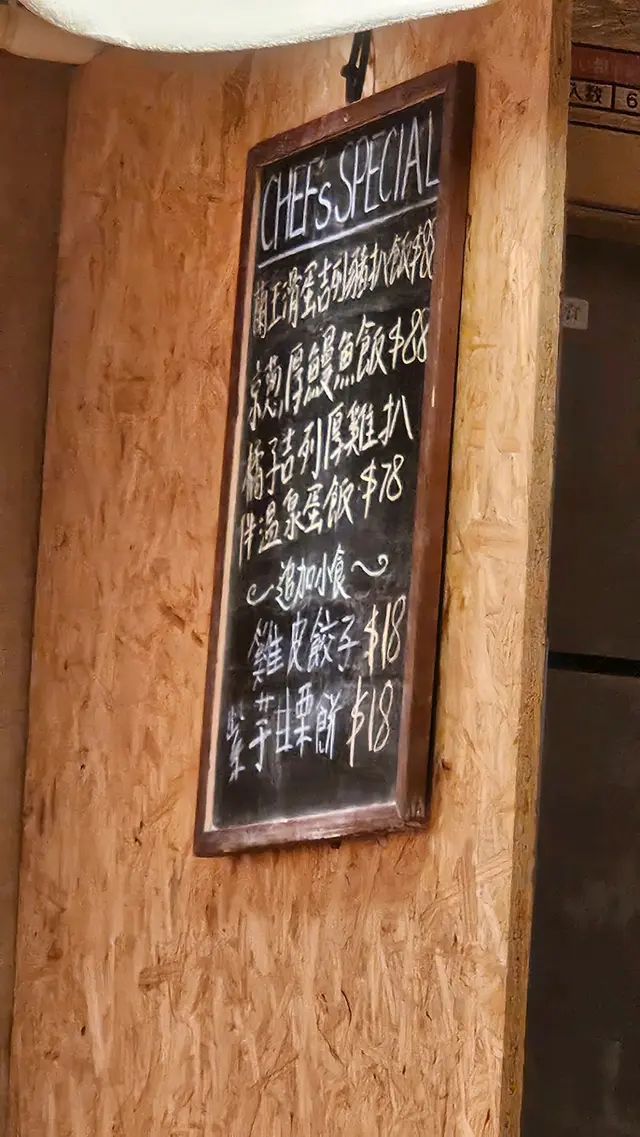 CHEF's SPECIAL
蘭王滑蛋吉列豬扒飯
京蔥厚鰻魚飯 $88
橘子吉列厚雞扒
伴溫泉蛋飯 $78
~追加小食~
雞皮餃子 $18
紫芋甘栗餅 $18
人数 6